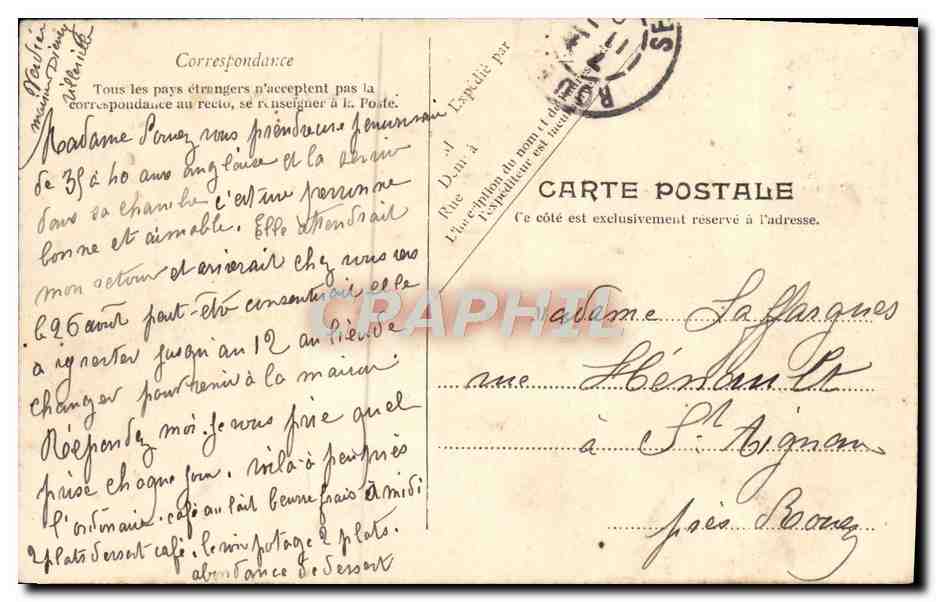 Correspondance
Tous les pays étrangers n'acceptent pas la
correspondance au recto, se renseigner à la Poste.
Madame vous
de 35 à 40 ans anglaise et la
dans sa chambre c'est une personne
bonne et aimable. Elle attendrait
mon retour et arriverait chez vous vers
le 26 août peut-être consentirait elle
à y rester jusqu'au 12 au lieu de
changer pour venir à la maison
Répondez moi. Je vous prie quel
prise chaque jour. voilà à peu près
l'ordinaire. café au lait beurre frais à midi
2 plats dessert café. le soir potage 2 plats.
abondance de dessert
Expédié par
M
Demt à
Rue
L'inscription du nom et de l'adresse de
l'expéditeur est
ROU
SE
CARTE POSTALE
Ce côté est exclusivement réservé à l'adresse.
CRAPHIL
Madame Laffargues
rue Hénault
à St Aignan
près Rouen